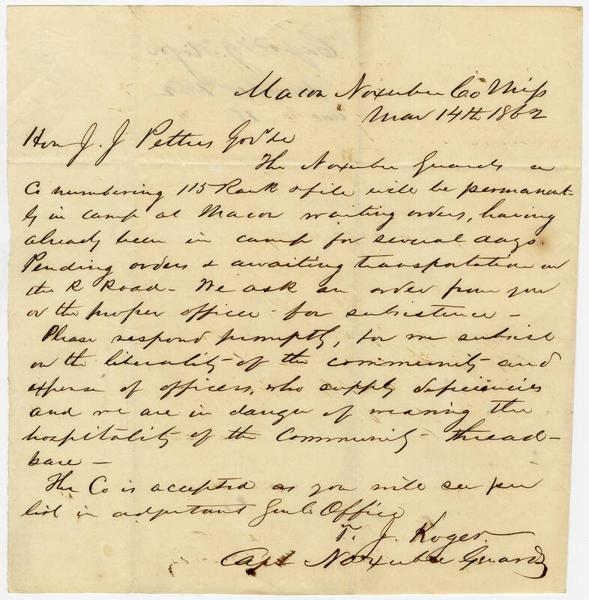 Macon Noxubee Co Miss
Mar 14th 1862
Hon J. J Pettus Gov &c
The Noxubee Guards a
Co numbering 115 Rank & file will be permanent-
ly in camp at Macon waiting orders, having
already been in camp for several days.
Pending orders & awaiting transportation on
the R Road - We ask an order from you
or the proper officer for subsistence -
Please respond promptly, for we subsist
on the liberality of the community and
expense of officers, who supply deficiencies
and we are in danger of wearing the
hospitality of the Community - thread-
bare -
The Co is accepted as you will see per
list in adjutant Genls Office
T. J. Koger
Capt Noxubee Guards